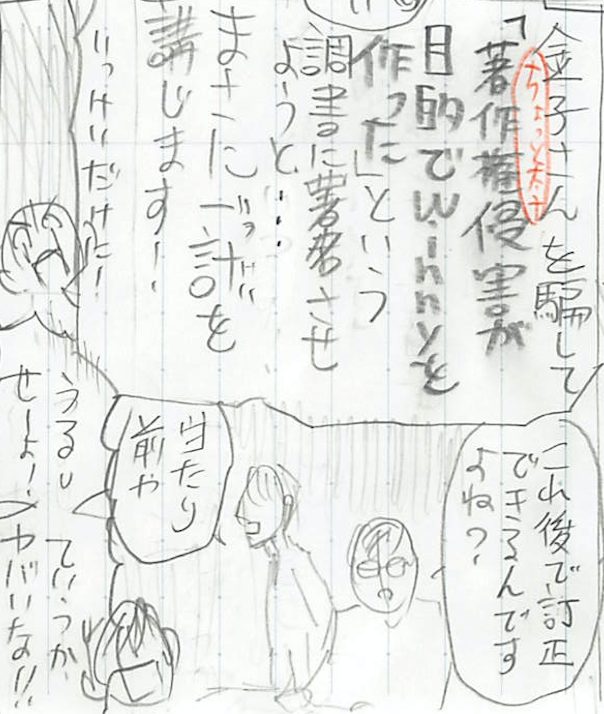 金子さんを騙して
ちょっと太さ
「著作権侵害が
目的でWinnyを
作った」という
調書に署名させ
ようと…
まさに一計を
いっけい
講じます！
いっけいだけに！
これ後で訂正
できるんです
よね？
当たり
前や
うるし
せーよ！
ていうか
ヤバいな!!